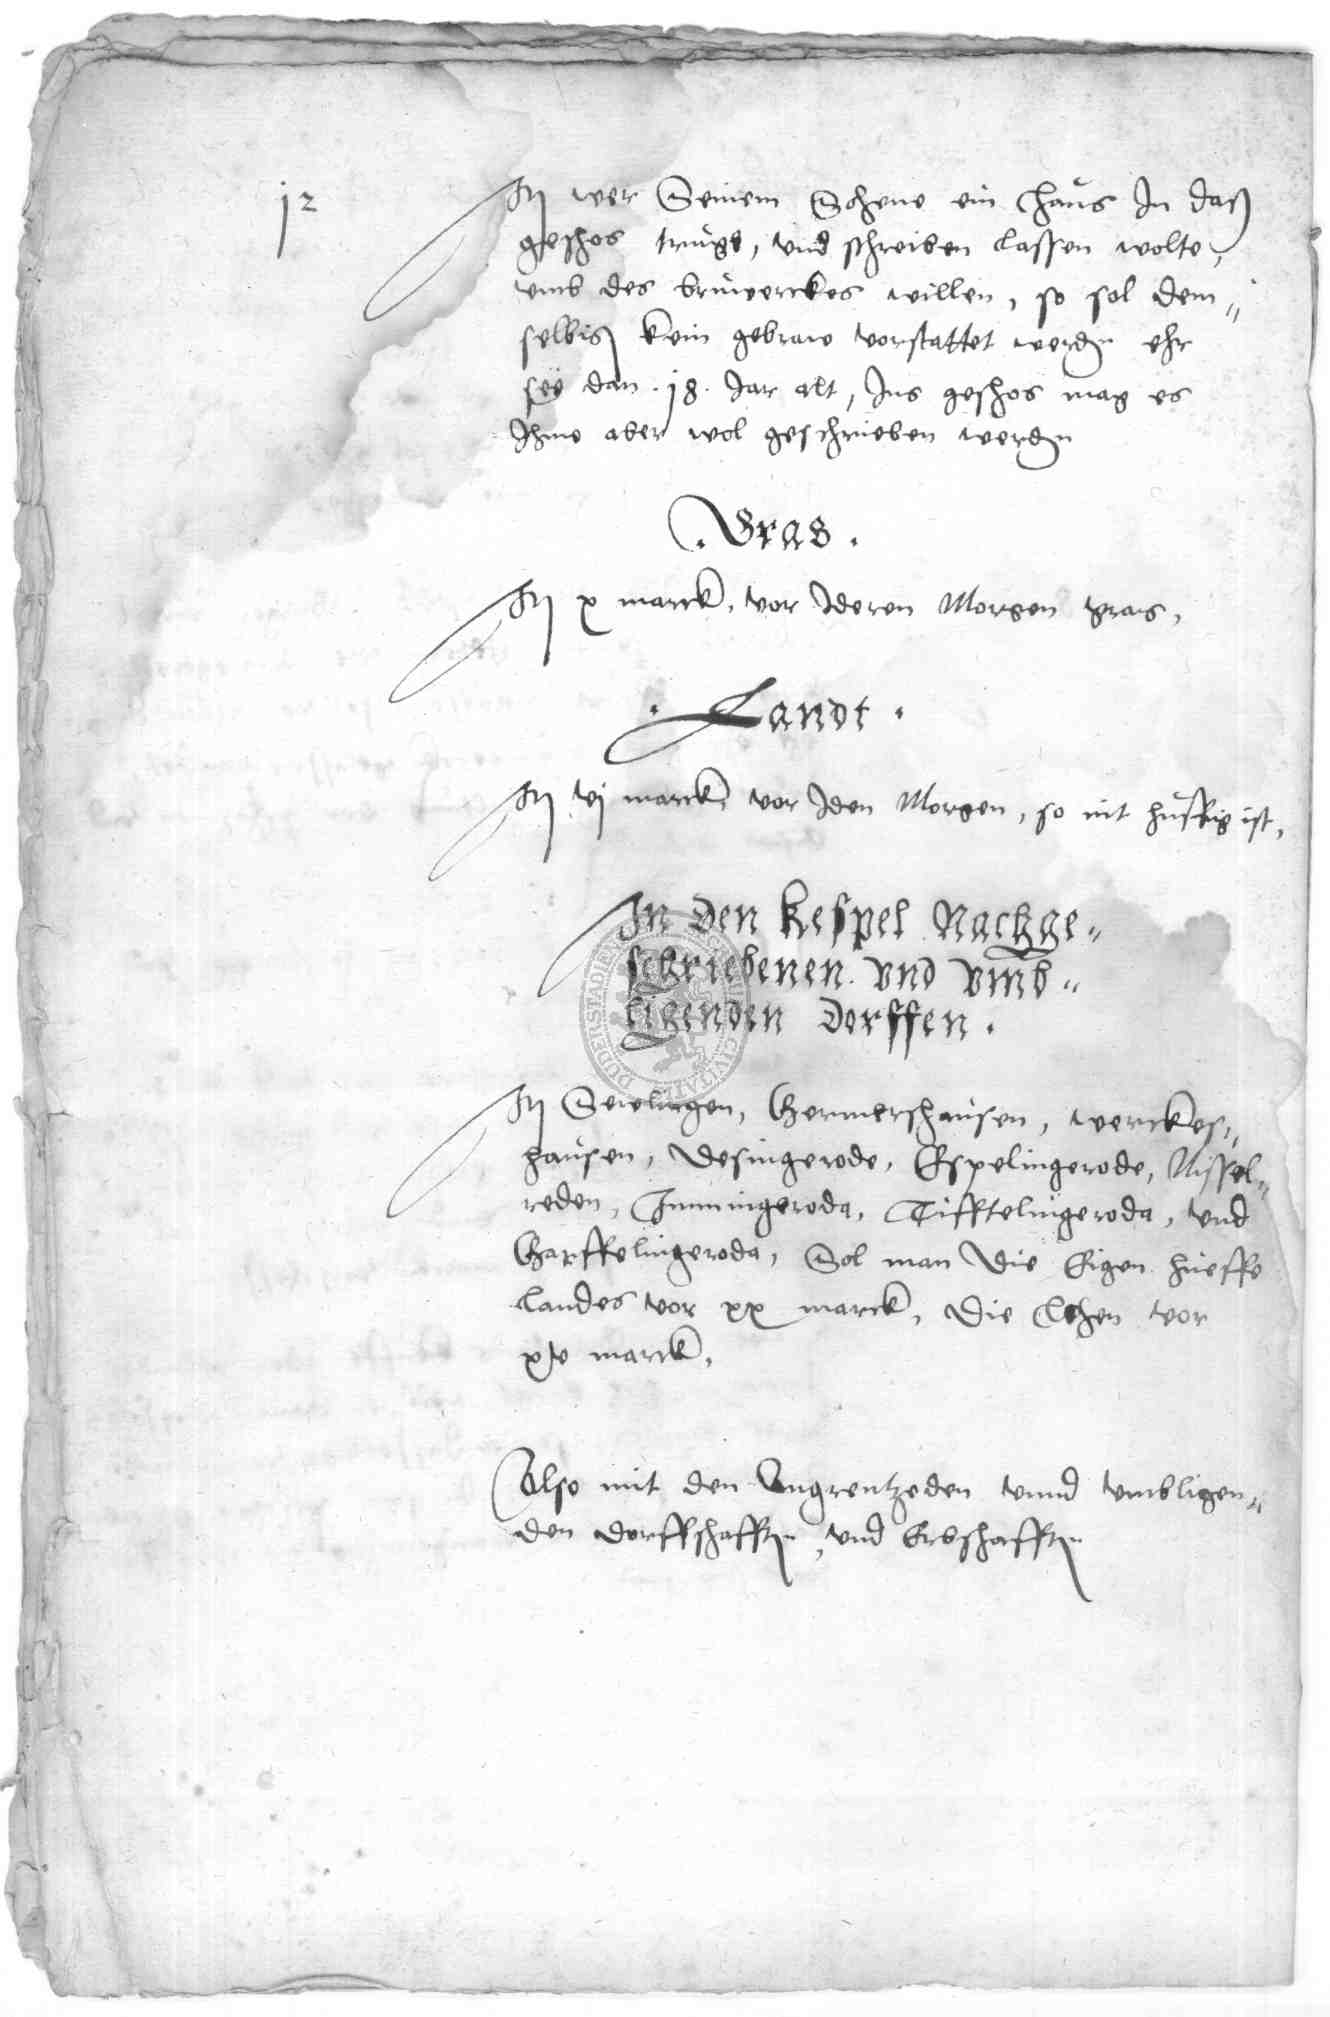 12
It wer Seinem Sohene ein Haus In das
geschos truge, und schreiben lassen wolte,
umb des bruwerckes willen, so sol dem„
selbig kein gebraw vorstattet werden ehr
sey dan .18. Jar alt, Ins geschos mag es
Ihme aber wol geschrieben werden
. Gras .
It x marck, vor Ideren Morgen gras,
. Landt .
It vj marck, vor Iden Morgen, so nit huffig ist,
In den kespel Nachge„
schriebenen und umb„
ligenden dorffen .
It Sewlingen, Germershausen, werckes„
hausen, Desingerode, Espelingerode, Nissel„
reden, Immingeroda, Tifftelingeroda, und
Gerffelingeroda, Sol man die Eigen hueffe
landes vor xx marck, die Lehen vor
xv marck,
Also mit den Angrentzeden unnd umbligen„
den dorffschafften, und Erbschafften